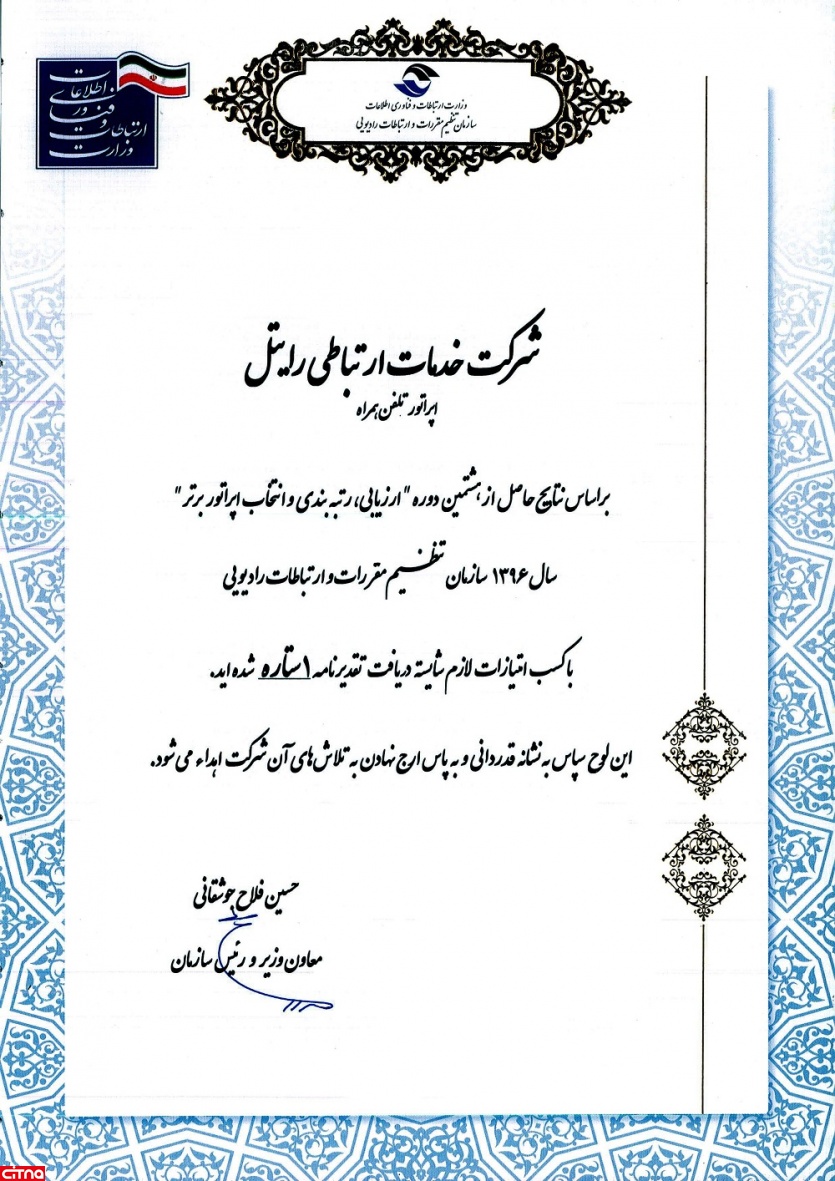 وزارت ارتباطات و فناوری اطلاعات
سازمان تنظیم مقررات و ارتباطات رادیویی
وزارت ارتباطات و فناوری اطلاعات
شرکت خدمات ارتباطی رایتل
اپراتور تلفن همراه
براساس نتایج حاصل از هشتمین دوره "ارزیابی، رتبه بندی و انتخاب اپراتور برتر"
سال ۱۳۹۶ سازمان تنظیم مقررات و ارتباطات رادیویی
با کسب امتیازات لازم شایسته دریافت تقدیرنامه ۱ ستاره شده اید.
این لوح سپاس به نشانه قدردانی و به پاس ارج نهادن به تلاش‌های آن شرکت اهداء می شود.
حسین فلاح جوشقانی
معاون وزیر و رئیس سازمان
citna